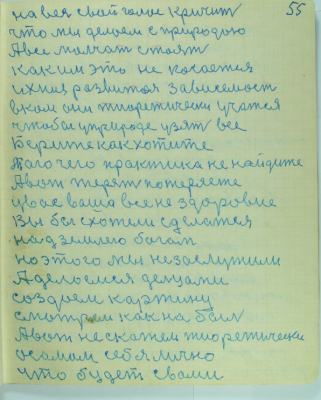 на вея свой голос кричит 55
что мы делаем с природою
А все молчат стоят
как им это не косается
ихниз развитоя зависемост
вком они тиоретически учатся
чтобы уприроде узят все
Берите как хотите
того чего практика не найдите
Авот терят потеряете
увас ваша все не здоровие
Вы бы схотели сделатся
надземлею богам
но этого мы незаслужили
Аделоемся демцами
создоем картину
смотрем как на был
Авот нескажем тиоретически
осамам себя лично
что будет свами